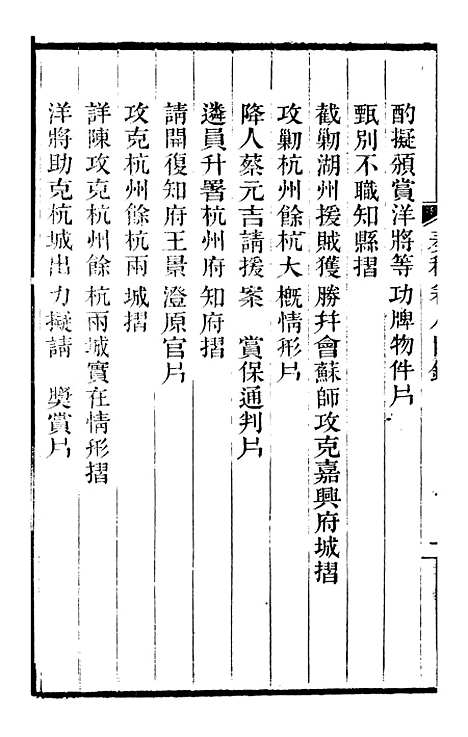 酌擬頒賞洋將等功牌物件片
甄別不職知縣摺
截勦湖州援賊獲勝幷會蘇師攻克嘉興府城摺
攻勦杭州餘杭大概情形片
降人蔡元吉請援案　賞保通判片
遴員升署杭州府知府摺
請開復知府王景澄原官片
攻克杭州餘杭兩城摺
詳陳攻克杭州餘杭兩城實在情形摺
洋將助克杭城出力擬請　獎賞片